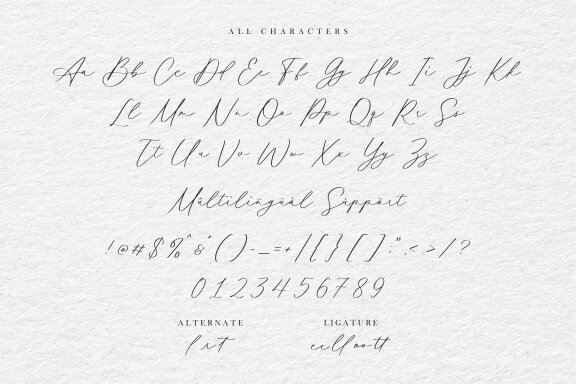 ALL CHARACTERS
Aa Bb Cc Dd Ee Ff Gg Hh Ii Jj Kk
Ll Mm Nn Oo Pp Qq Rr Ss
Tt Uu Vv Ww Xx Yy Zz
Mültilingüäl Süppört
!@#$%^&*()-_=+/{}[]:;"',<.>/?
0123456789
ALTERNATE LIGATURE
l r t ee ll oo tt